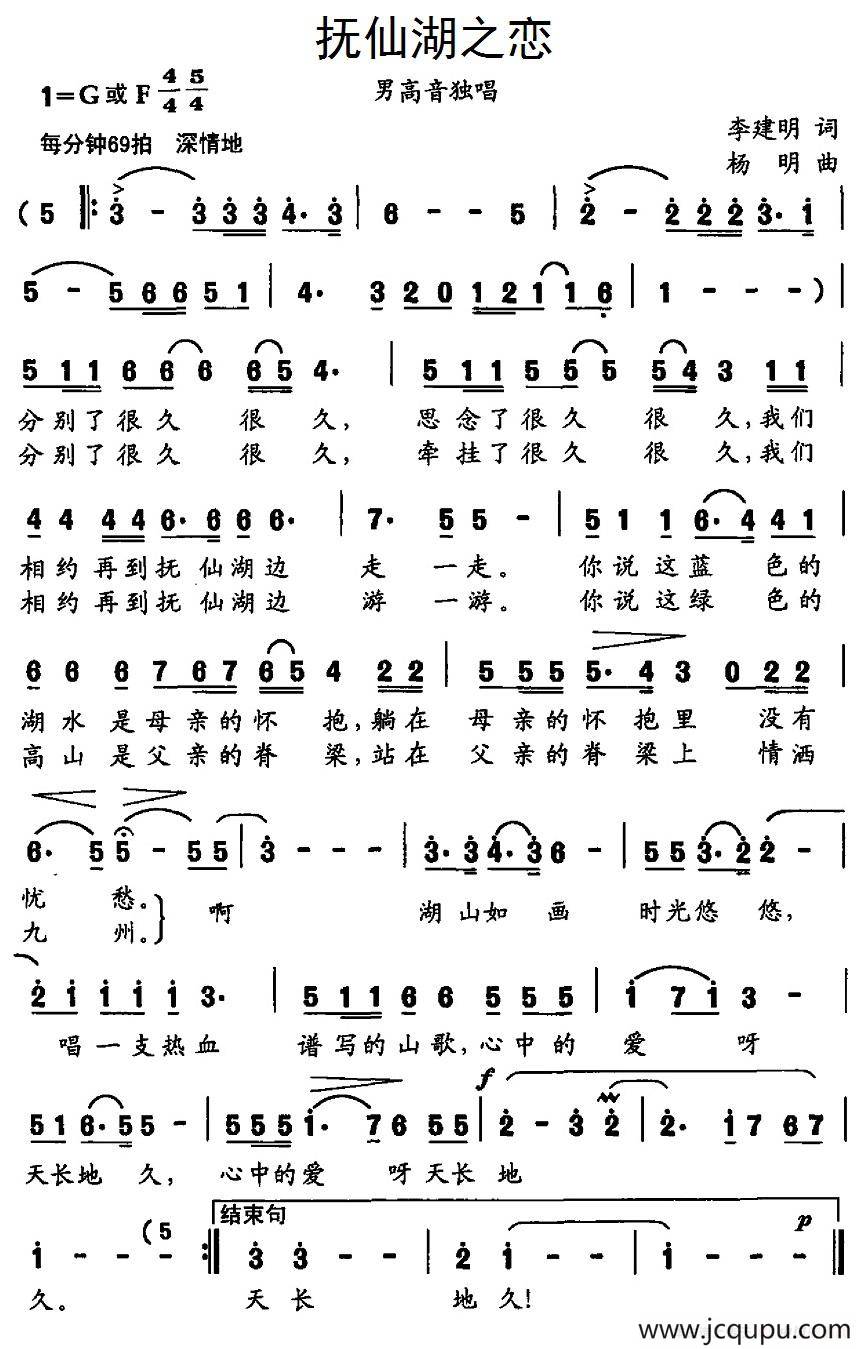 抚仙湖之恋
1=G或F 4/4 5/4
男高音独唱
每分钟69拍 深情地
李建明 词
杨 明 曲
(5 ‖: 3 - 3 3 3 3 4· 3 | 6 - - 5 | 2 - 2 2 2 2 3· 1 |
5 - 5 6 6 5 1 | 4· 3 2 0 1 2 1 1 6 | 1 - - - ) |
5 1 1 6 6 6 6 5 4· | 5 1 1 5 5 5 5 4 3 1 1 |
分别了很久 很 久, 思念了很久 很 久,我们
分别了很久 很 久, 牵挂了很久 很 久,我们
4 4 4 4 6· 6 6 6· | 7· 5 5 - | 5 1 1 6· 4 4 1 |
相约再到抚仙湖边 走 一走。 你说这蓝 色的
相约再到抚仙湖边 游 一游。 你说这绿 色的
6 6 6 7 6 7 6 5 4 2 2 | 5 5 5 5 5· 4 3 0 2 2 |
湖水是母亲的怀 抱,躺在 母亲的怀抱里 没有
高山是父亲的脊 梁,站在 父亲的脊梁上 情洒
6· 5 5 - 5 5 | 3 - - - | 3· 3 4· 3 6 - | 5 5 3· 2 2 - |
忧 愁。} 啊 湖山如 画 时光悠 悠,
九 州。}
2 1 1 1 1 3· | 5 1 1 6 6 5 5 5 | 1 7 1 3 - |
唱一支热血 谱写的山歌,心中的 爱 呀
f
5 1 6· 5 5 - | 5 5 5 1· 7 6 5 5 | 2 - 3 2 | 2· 1 7 6 7 |
天长地 久, 心中的爱 呀天长 地
结束句
p
1 - - - (5 :‖ 3 3 - - | 2 1 - - | 1 - - - ‖
久。 天 长 地 久!
www.jcqupu.com